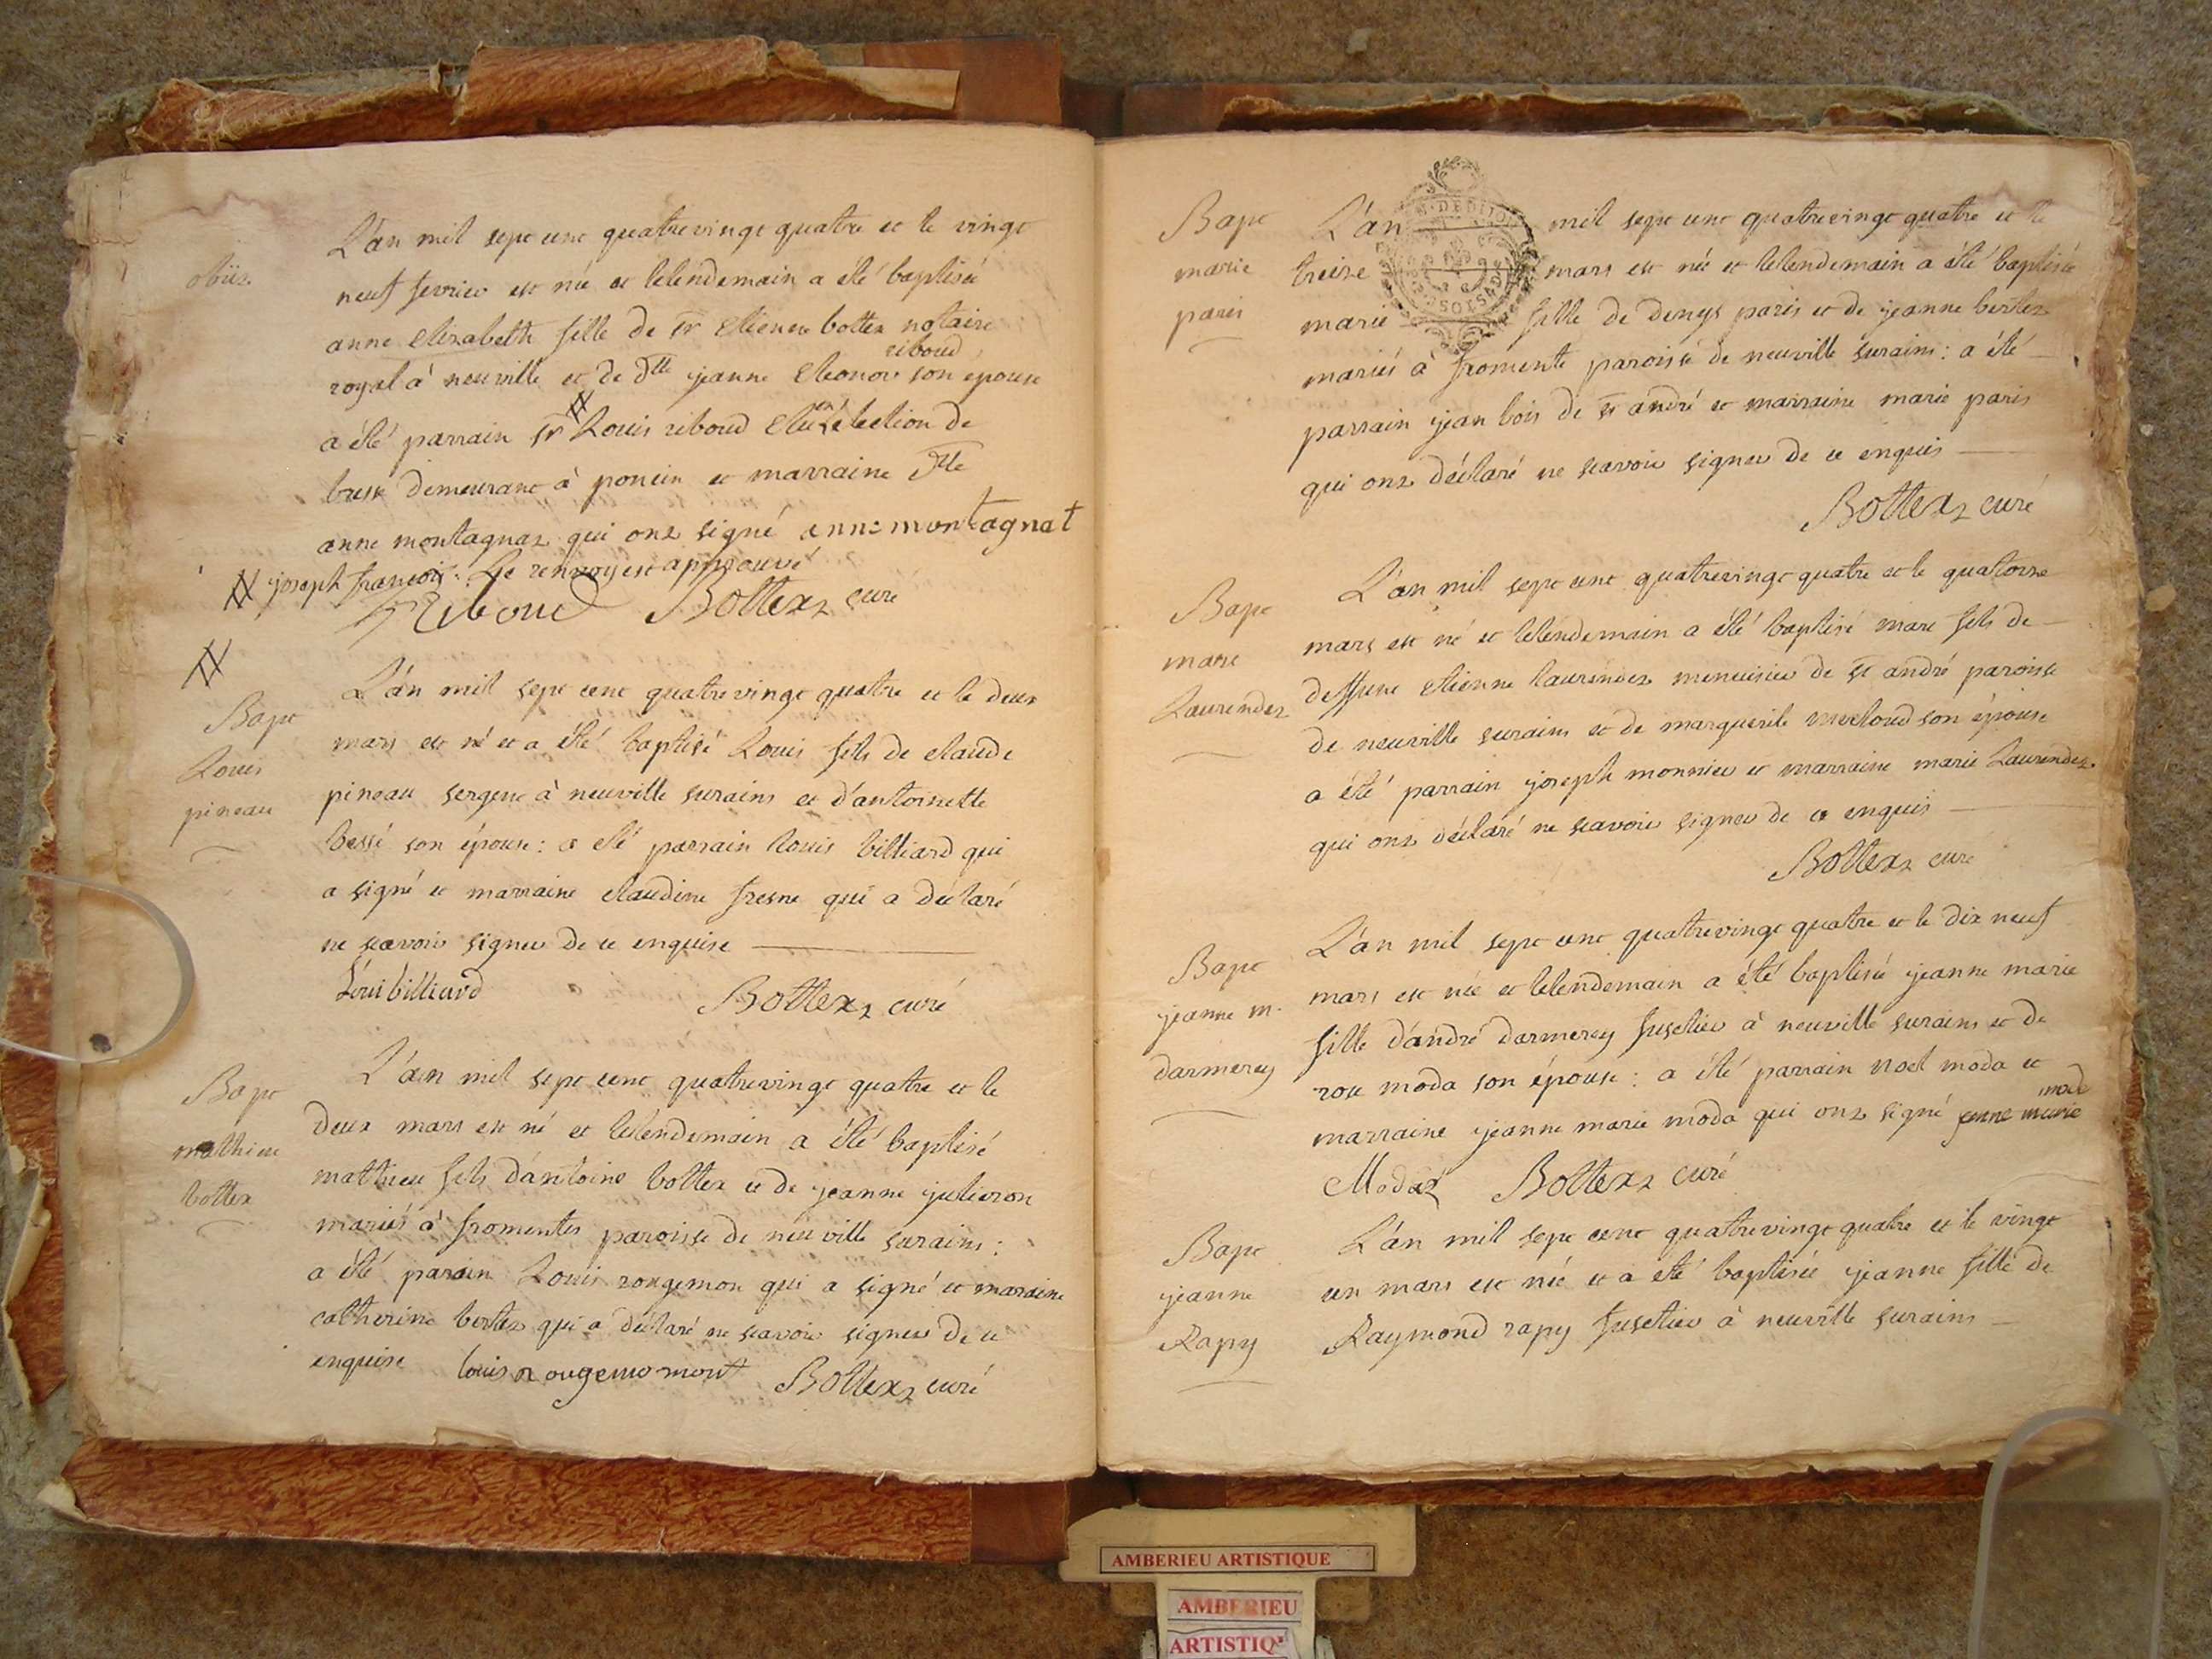 obiit
L'an mil sept cent quatrevingt quatre et le vingt
neuf fevrier est née et lelendemain a été baptisée
anne elizabeth fille de sr etienne bottex notaire
riboud
royal à neuville et de dlle jeanne eleonor son epouse
a été parrain sr # Louis riboud élu en l'élection de
bresse demeurant à poncin et marraine dlle
anne montagnat qui ont signé anne montagnat
# joseph françois. Le renvoy est approuvé
Riboud Bottex curé
#
Bapt
Louis
pineau
L'an mil sept cent quatrevingt quatre et le deux
mars est né et a été baptisé Louis fils de claude
pineau sergent à neuville surains et d'antoinette
bessé son épouse : a été parrain louis billiard qui
a signé et marraine claudine fresne qui a déclaré
ne scavoir signer de ce enquise
Loui billiard Bottex curé
Bapt
mathieu
bottex
L'an mil sept cent quatrevingt quatre et le
deux mars est né et lelendemain a été baptisé
mathieu fils d'antoine bottex et de jeanne
mariés à fromentes paroisse de neuville surains :
a été parain Louis rougemon qui a signé et maraine
catherine bertex qui a déclaré ne scavoir signer de ce
enquise louis rougemomont Bottex curé
Bapt
marie
paris
L'an mil sept cent quatrevingt quatre et le
treize mars est née et lelendemain a été baptisée
marie fille de denys paris et de jeanne bertex
mariés à fromente paroisse de neuville surains : a été
parrain jean bois de st andré et marraine marie paris
qui ont déclaré ne scavoir signer de ce enquis
Bottex curé
Bapt
marc
Laurendez
L'an mil sept cent quatrevingt quatre et le quatorze
mars est né et lelendemain a été baptisé marc fils de
deffunt etienne laurendez menuisier de st andré paroisse
de neuville surains et de marguerite son épouse
a été parrain joseph monnier et marraine marie Laurendez
qui ont déclaré ne scavoir signer de ce enquis
Bottex curé
Bapt
jeanne m.
darmerey
L'an mil sept cent quatrevingt quatre et le dix neuf
mars est née et lelendemain a été baptisée jeanne marie
fille d'andré darmerey fusetier à neuville surains et de
rose moda son épouse : a été parrain noel moda et
marraine jeanne marie moda qui ont signé jenne marie
mod
Modaz Bottex curé
Bapt
jeanne
Rapy
L'an mil sept cent quatrevingt quatre et le vingt
un mars est née et a été baptisée jeanne fille de
Raymond rapy fusetier à neuville surains
AMBERIEU ARTISTIQUE
AMBERIEU
ARTISTIQ